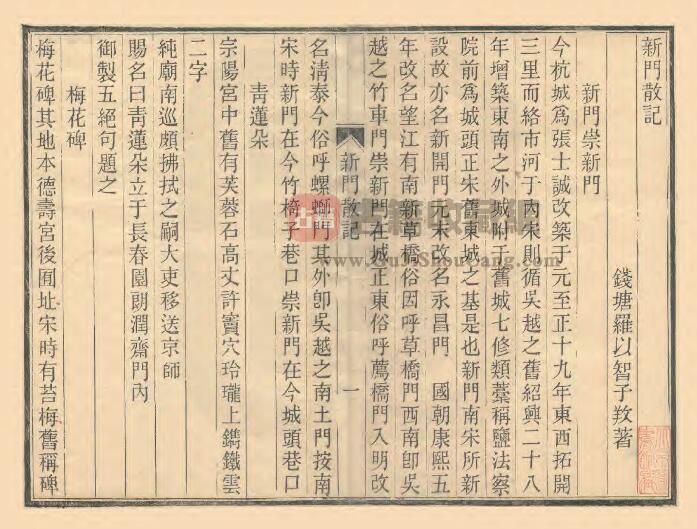 新門散記
錢塘羅以智子敉著
新門崇新門
今杭城爲張士誠改築于元至正十九年東西拓開
三里而絡市河于內宋則循吳越之舊紹興二十八
年增築東南之外城附于舊城七修類藁稱鹽法察
院前爲城頭正朱舊東城之基是也新門南宋所新
設故亦名新開門元末改名永昌門 國朝康熙五
年改名望江有南新草橋俗因呼草橋門西南卽吳
越之竹車門崇新門在城正東俗呼薦橋門入明改
新門散記 一
名淸泰今俗呼螺螄門其外卽吳越之南土門按南
宋時新門在今竹椅子巷口崇新門在今城頭巷口
靑蓮朵
宗陽宮中舊有芙蓉石高丈許竇穴玲瓏上鐫鐵雲
二字
純廟南巡頗拂拭之嗣大吏移送京師
賜名曰靑蓮朵立于長春園朗潤齋門內
御製五絕句題之
梅花碑
梅花碑其地本德壽宮後囿址宋時有苔梅舊稱碑
www.GuJiShouCang.com